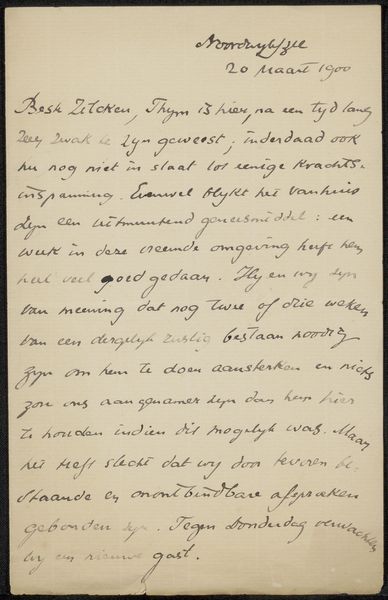 Noordwijk/zee
20 Maart 1900
Beste Zilcken, Thijm is hier, na een tyd lang
zeer zwak te zyn geweest; inderdaad ook
nu nog niet in staat tot eenige krachts-
inspanning. Evenwel blykt het van huis
zyn een uitmuntend geneesmiddel: een
week in deze vreemde omgeving heeft hem
heel veel goed gedaan. Hy en wy zyn
van meening dat nog twee of drie weken
van een dergelyk rustig bestaan noodig
zyn om hem te doen aansterken en niets
zou ons aangenamer zyn dan hem hier
te houden indien dit mogelyk was. Maar
het treft slecht dat wy door tevoren be-
staande en onontbindbare afspraken
gebonden zyn. Tegen Donderdag verwachten
wy een nieuwe gast.